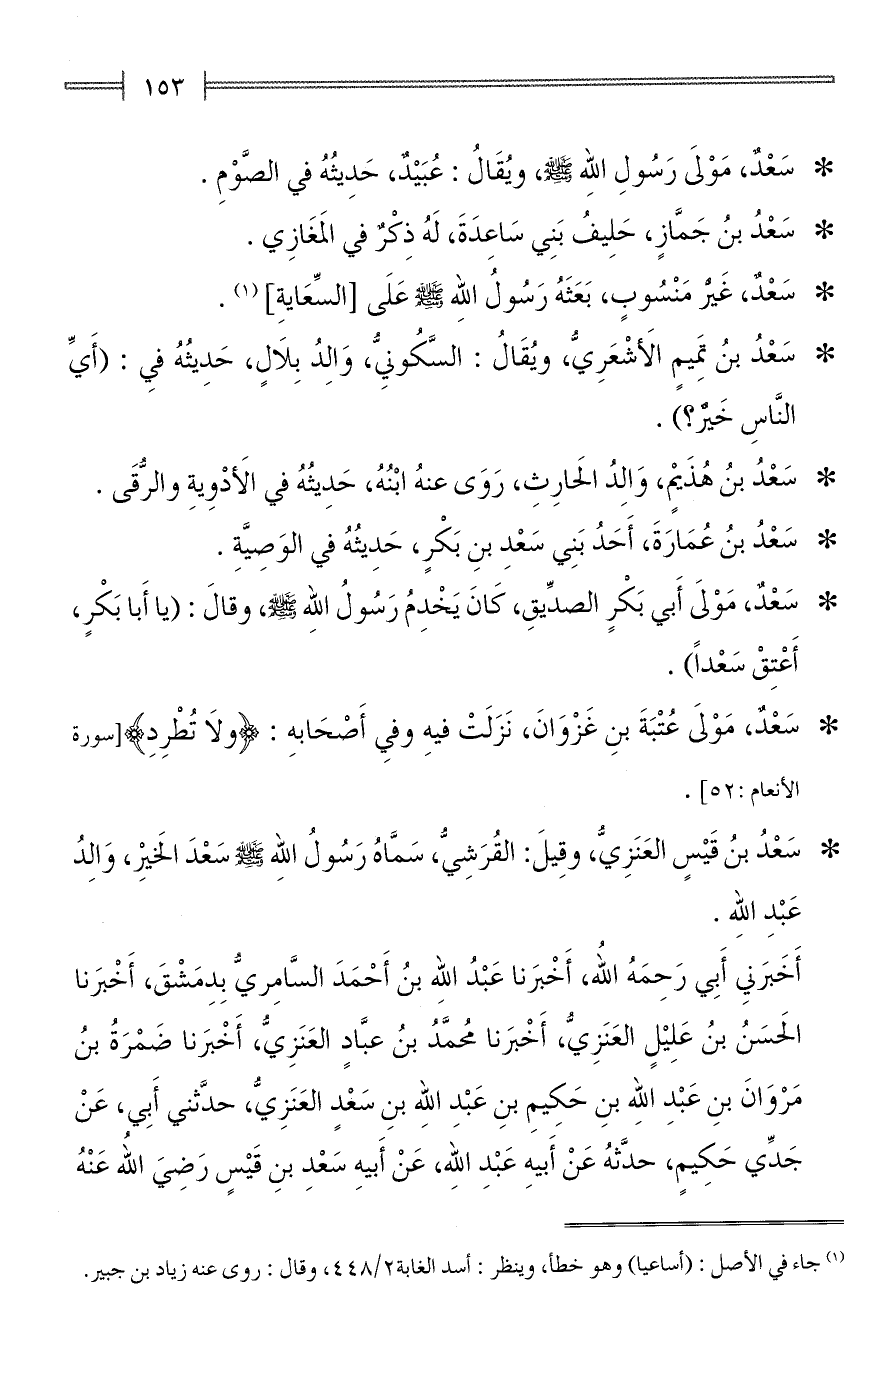 ١٥٣
* سَعْدٌ، مَوْلَى رَسُولِ اللهِ ﷺ، ويُقَالُ : عُبَيْدٌ، حَدِيثُهُ في الصَّوْمِ .
* سَعْدُ بنُ جَمَّازٍ، حَلِيفُ بَنِي سَاعِدَةَ، لَهُ ذِكْرٌ في المَغَازِي .
* سَعْدٌ، غَيْرُ مَنْسُوبٍ، بَعَثَهُ رَسُولُ اللهِ ﷺ عَلَى [السِّعَايةِ] (١) .
* سَعْدُ بنُ تَمِيمٍ الأَشْعَرِيُّ، ويُقَالُ : السَّكُونيُّ، وَالِدُ بِلَالٍ، حَدِيثُهُ فِي : (أَيِّ
النَّاسِ خَيرٌ؟) .
* سَعْدُ بنُ هُذَيمٍ، وَالِدُ الحَارِثِ، رَوَى عنهُ ابْنُهُ، حَدِيثُهُ في الأَدْوِيةِ والرُّقَى .
* سَعْدُ بنُ عُمَارَةَ، أَحَدُ بَنِي سَعْدِ بنِ بَكْرٍ، حَدِيثُهُ في الوَصِيَّةِ .
* سَعْدٌ، مَوْلَى أَبي بَكْرٍ الصدِّيقِ، كَانَ يَخْدِمُ رَسُولُ اللهِ ﷺ، وقالَ : (يا أَبا بَكْرٍ،
أَعْتِقْ سَعْداً) .
* سَعْدٌ، مَوْلَى عُتْبَةَ بنِ غَزْوَانَ، نَزَلَتْ فيهِ وفي أَصْحَابهِ : ﴿ولَا تُطْرِدِ﴾[سورة
الأنعام :٥٢] .
* سَعْدُ بنُ قَيْسٍ العَنَزِيُّ، وقِيلَ: القُرَشِيُّ، سَمَّاهُ رَسُولُ اللهِ ﷺ سَعْدَ الخَيرْ، وَالِدُ
عَبْدِ اللهِ .
أَخبَرَنِي أَبِي رَحِمَهُ اللهُ، أَخْبَرَنا عَبْدُ اللهِ بنُ أَحْمَدَ السَّامِريُّ بِدِمَشْقَ، أَخْبَرَنا
الحَسَنُ بنُ عَلِيْلٍ العَنَزِيُّ، أَخْبَرَنا مُحمَّدُ بنُ عبَّادٍ العَنَزِيُّ، أَخْبَرَنا ضَمْرَةُ بنُ
مَرْوَانَ بنِ عَبْدِ اللهِ بنِ حَكِيمِ بنِ عَبْدِ اللهِ بنِ سَعْدٍ العَنَزِيُّ، حدثَّني أَبي، عَنْ
جَدِّي حَكِيمٍ، حدثَّهُ عَنْ أَبيهِ عَبْدِ اللهِ، عَنْ أَبيهِ سَعْدِ بنِ قَيْسٍ رَضِيَ اللهُ عَنْهُ
(١) جاء في الأصل : (أساعيا) وهو خطأ، وينظر : أسد الغابة٤٤٨/٢، وقال : روى عنه زياد بن جبير.